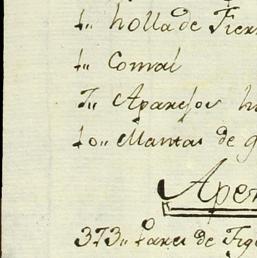 1,, holla de Fier
1,, Comal
7,, Aparejos h
10,, Mantas de g
Aper
373,, Pares de Fig